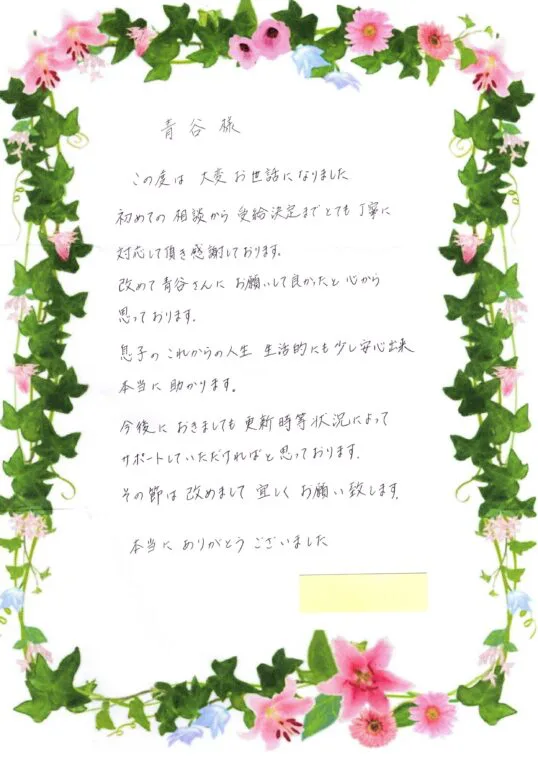 青谷様
この度は 大変 お世話になりました
初めての 相談から 受給決定まで とても 丁寧に
対応して頂き感謝しております。
改めて 青谷さんに お願いして良かったと 心から
思っております。
息子の これからの人生 生活的にも 少し安心出来
本当に 助かります。
今後に おきましても 更新時等状況によって
サポートしていただければと 思っております。
その節は 改めまして 宜しく お願い致します。
本当に ありがとう ございました